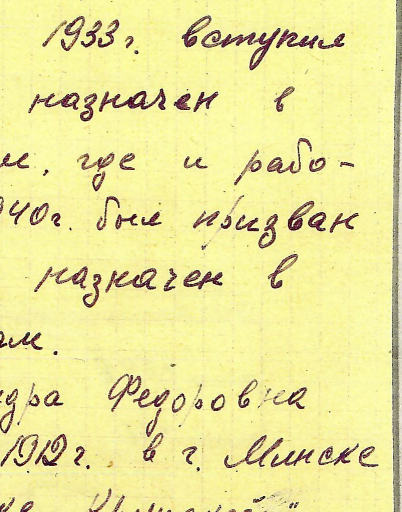 1933г. вступил
назначен в
где и рабо-
940г. был призван
назначен в
ам.
дра Федоровна
1912г. в г. Минске